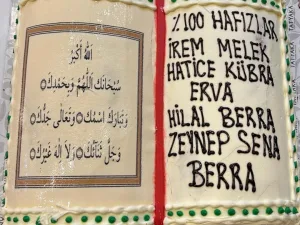 اللهُ أَكْبَرُ
سُبْحَانَكَ اللّٰهُمَّ وَبِحَمْدِكَ
وَتَبَارَكَ اسْمُكَ وَتَعَالٰى جَدُّكَ
وَجَلَّ ثَنَاۤئُكَ وَلَاۤ اِلٰهَ غَيْرُكَ
%100 HAFIZLAR
İREM MELEK
HATİCE KÜBRA
ERVA
HİLAL BERRA
ZEYNEP SENA
BERRA